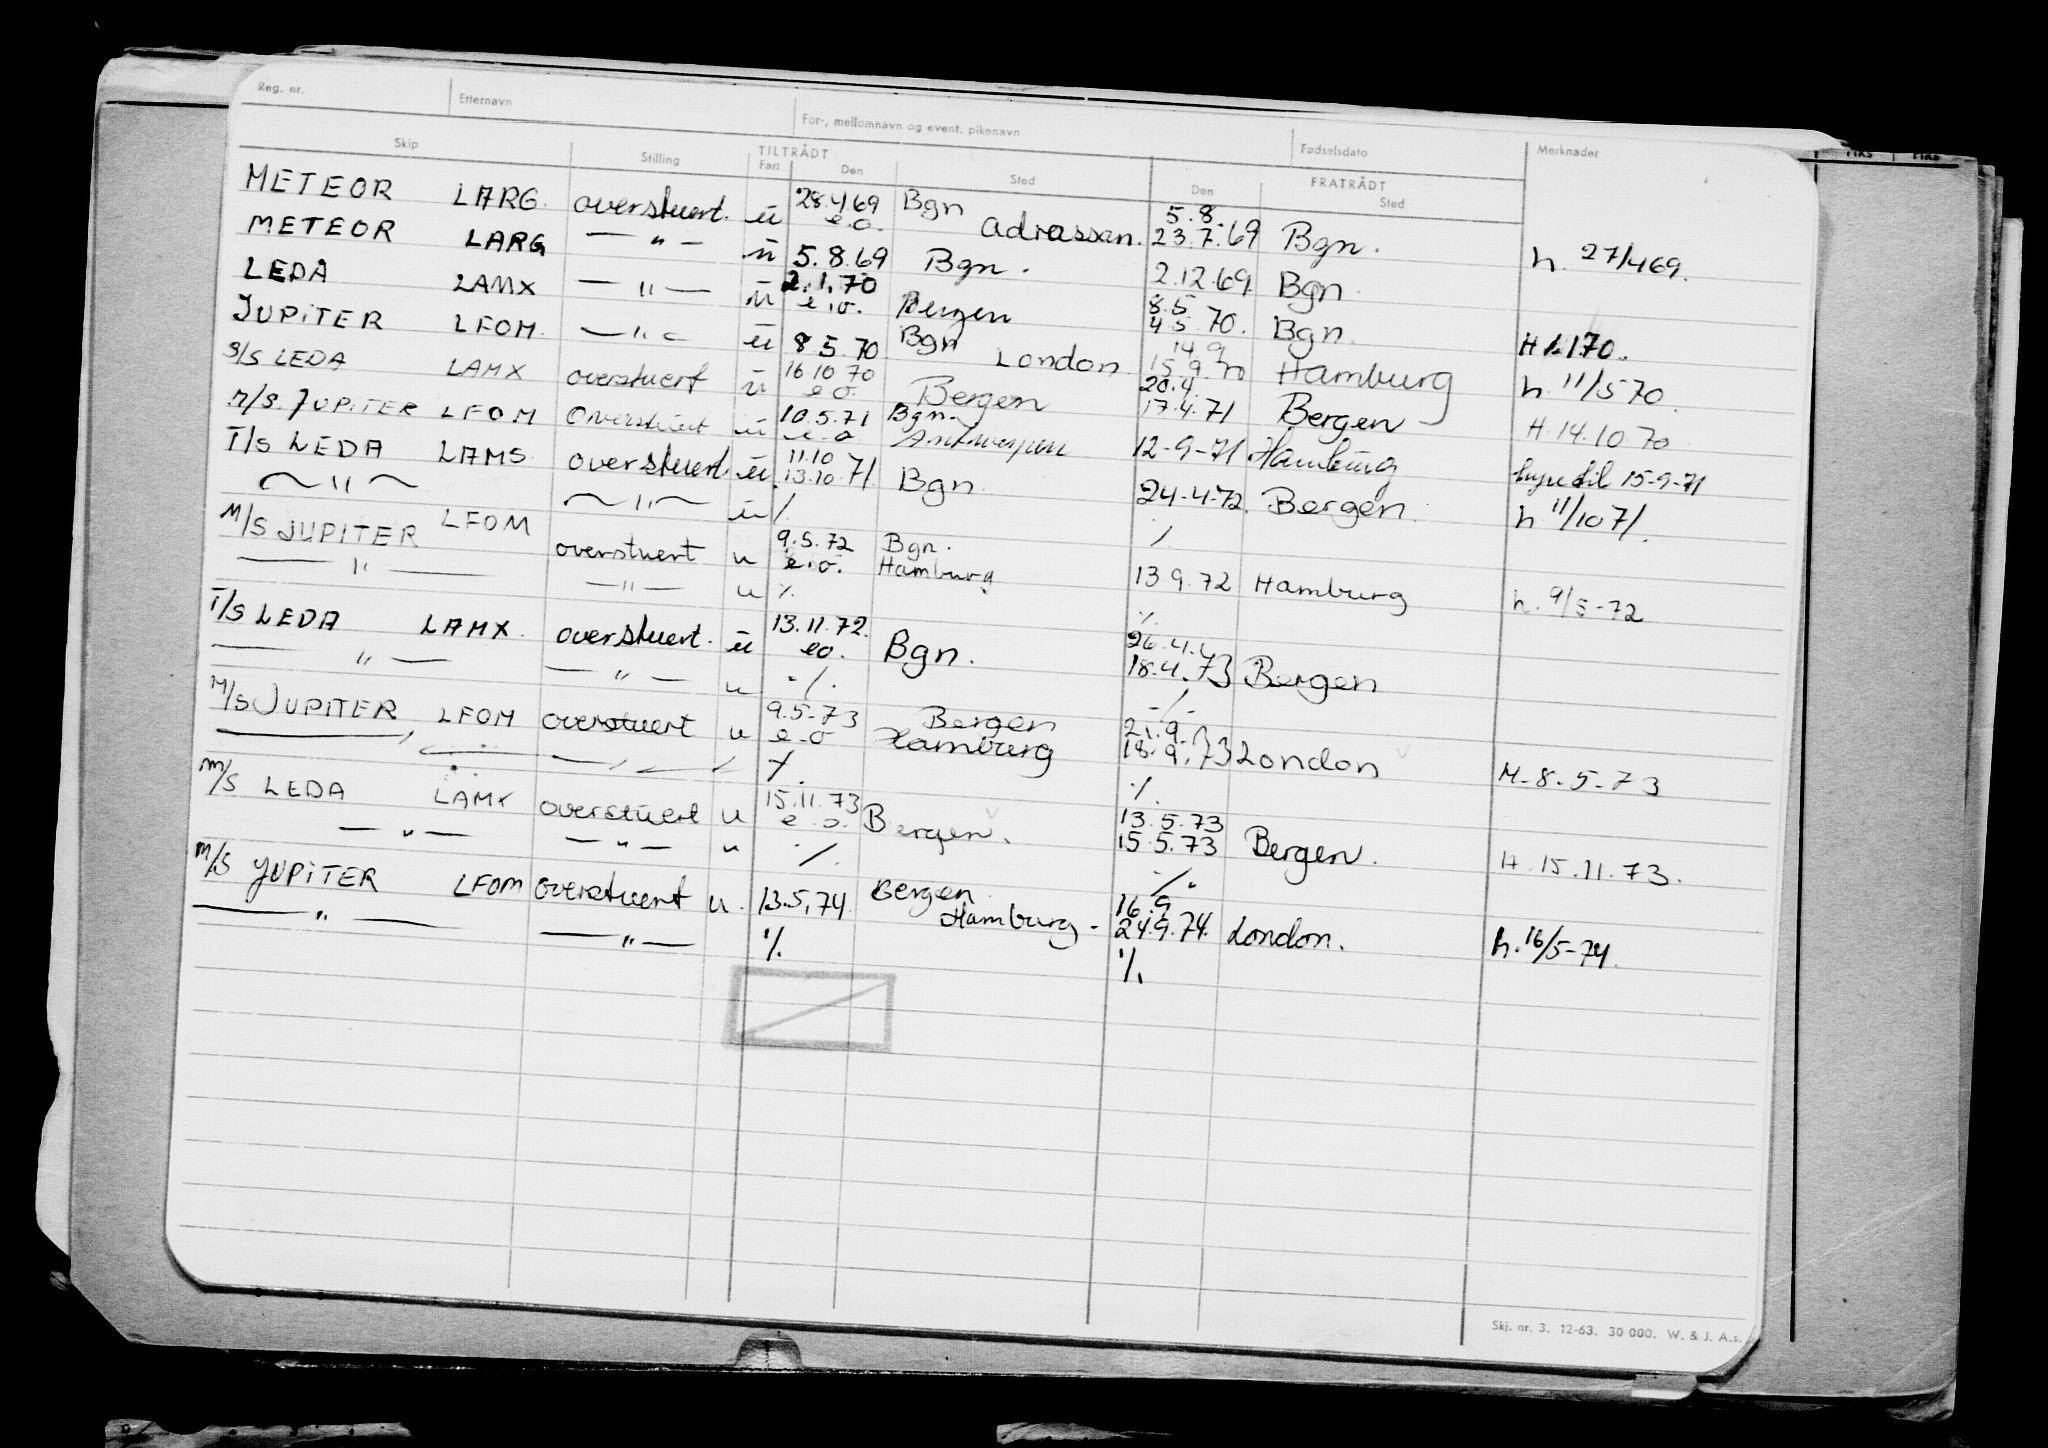 Reg. nr. Etternavn For-, mellomnavn og event. pikenavn Fødselsdato Merknader
Skip Stilling TILTRÅDT FRATRÅDT
Fart Den Sted Den Sted
METEOR LARG. overstuert. u 28.4 69 e.o. Bgn Adrassen. 5.8. 23.7.69 Bgn. h. 27/4 69.
METEOR LARG —"— u 5.8.69 Bgn. 2.12.69 Bgn
LEDA LAMX —"— u 2.1.70 e.o. Bergen 8.5 4 5 70. Bgn. H 1.1 70.
JUPITER LFOM. —"— u 8 5.70 Bgn London 14.9 15.9.70 Hamburg h. 11/5 70.
S/S LEDA LAMX overstuert u 16 10 70 e.o. Bergen 20.4. 17.4.71 Bergen H. 14.10 70
M/S. JUPITER LFOM Overstuert u 10.5.71 e.o Bgn. Antwerpen 12-9-71 Hamburg hyre til 15-9-71
T/S LEDA LAMS overstuert. u 11.10 13.10.71 Bgn 24-4-72. Bergen. h 11/10 71.
—"— —"— u ./. ./.
M/S JUPITER LFOM overstuert u 9.5.72 e.o. Bgn. Hamburg 13.9.72 Hamburg h. 9/5-72
—"— —"— u ./. ./.
T/S LEDA LAMX. overstuert. u 13.11.72. eo. Bgn. 26.4. 18.4.73 Bergen
—"— —"— u ./. ./.
M/S JUPITER LFOM overstuert u 9.5-73 e.o Bergen Hamburg 21.9. 18.9.73 London M-8-5-73
—"— —"— ./. ./.
M/S LEDA LAMX overstuert u 15.11.73 e.o. Bergen. 13.5.73 15.5.73 Bergen. H. 15.11.73.
—"— —"— " ./. ./.
M/S JUPITER LFOM overstuert u. 13.5.74 Bergen Hamburg - 16.9 24.9.74. London. h. 16/5-74.
—"— —"— ./. ./.
Skj. nr. 3. 12-63. 30 000. W. & J. A.s.